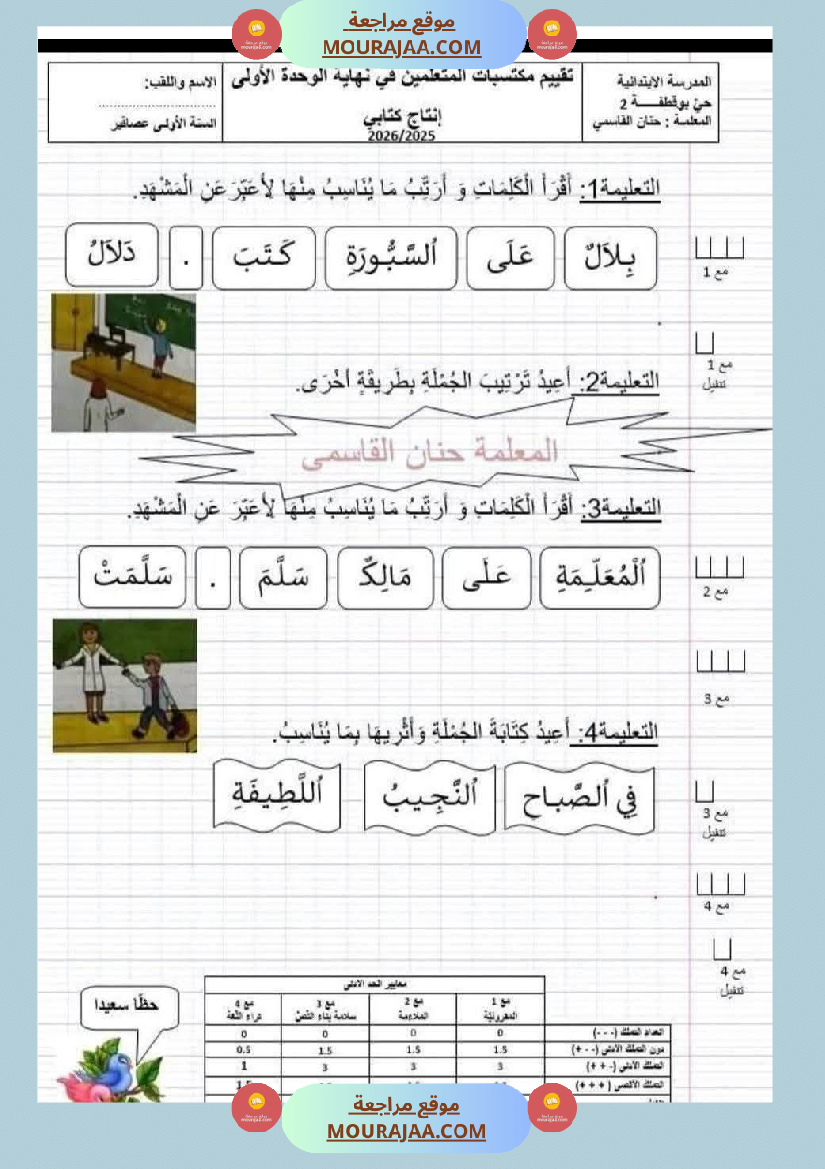 موقع مراجعة
MOURAJAA.COM
المدرسة الابتدائية
حيّ بوقطفـــــة 2
المعلمة : حنان القاسمي
تقييم مكتسبات المتعلمين في نهاية الوحدة الأولى
إنتاج كتابي
2026/2025
الاسم واللقب:
..............................
السنة الأولى عصافير
التعليمة1: أَقْرَأُ الْكَلِمَاتِ وَ أُرَتِّبُ مَا يُنَاسِبُ مِنْهَا لِأُعَبِّرَ عَنِ الْمَشْهَدِ.
بِـلاَلٌ عَلَى اُلسَّبُّـورَةِ كَـتَـبَ . دَلاَلُ
مع 1
.
مع 1
تنفيل
التعليمة2: أُعِيدُ تَرْتِيبَ الجُمْلَةِ بِطَرِيقَةٍ أُخْرَى.
المعلمة حنان القاسمي
التعليمة3: أَقْرَأُ الْكَلِمَاتِ وَ أُرَتِّبُ مَا يُنَاسِبُ مِنْهَا لِأُعَبِّرَ عَنِ الْمَشْهَدِ.
اُلْمُعَلِّـمَةِ عَـلَـى مَـالِـكٌ سَـلَّمَ . سَـلَّمَـتْ
مع 2
مع 3
التعليمة4: أُعِيدُ كِتَابَةَ الجُمْلَةِ وَأُثْرِيهَا بِمَا يُنَاسِبُ.
فِي اُلصَّبـاح اُلنَّجِـيـبُ اُللَّطِـيفَةِ
مع 3
تنفيل
.
مع 4
مع 4
تنفيل
حظّا سعيدا
معايير الحد الأدنى
مع 1 مع 2 مع 3 مع 4
المقروئيّة الملاءمة سلامة بناء النّصّ ثراء اللّغة
انعدام التملك (- - -) 0 0 0 0
دون التملك الأدنى (+ - -) 1.5 1.5 1.5 0.5
التملك الأدنى (+ + -) 3 3 3 1
التملك الأقصى (+ + +)
موقع مراجعة
MOURAJAA.COM